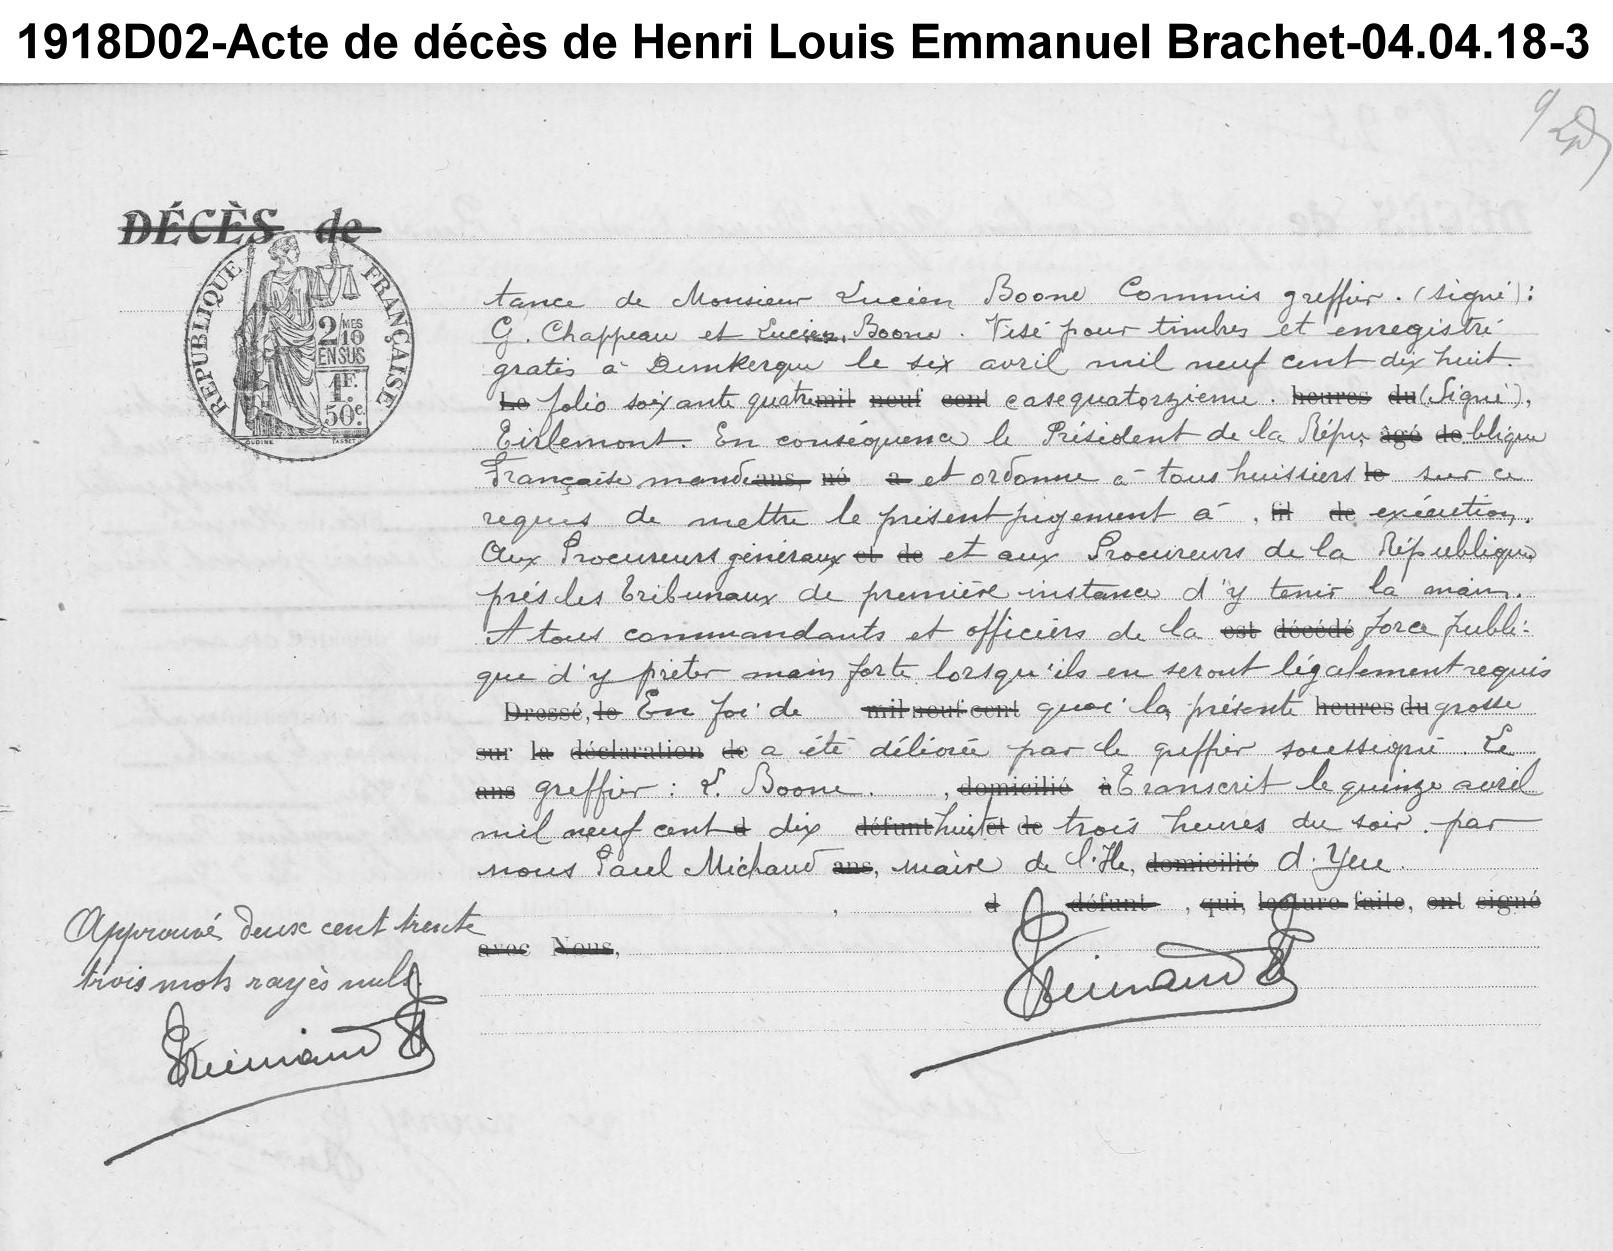 1918D02-Acte de décès de Henri Louis Emmanuel Brachet-04.04.18-3
9
DÉCÈS de
RÉPUBLIQUE FRANÇAISE
2/MES
10
EN SUS
1F.
50c.
OUDINÉ TASSET
tance de Monsieur Lucien Boone Commis greffier. (signé):
G. Chappeau et Lucien Boone. Visé pour timbres et enregistré
gratis à Dunkerque le six avril mil neuf cent dix huit.
Le folio soixante quatre mil neuf cent case quatorzième. heures du (Signé),
Tirlemont. En conséquence le Président de la Répu- âgé de blique
Française mande ans, né a et ordonne à tous huissiers le sur ce
requis de mettre le présent jugement à , fil de exécution.
Aux Procureurs généraux et de et aux Procureurs de la République
près les tribunaux de première instance d'y tenir la main.
A tous commandants et officiers de la est décédé force publi-
que d'y prêter main forte lorsqu'ils en seront légalement requis
Dressé, le En foi de mil neuf cent quoi la présente heures du grosse
sur la déclaration de a été délivrée par le greffier soussigné. Le
ans greffier: L. Boone. , domicilié à Transcrit le quinze avril
mil neuf cent d dix défunt huit et de trois heures du soir. par
nous Paul Michaud ans, maire de l'Ile, domicilié d'Yeu.
, d défunt , qui, lecture faite, ont signé
avec Nous,
Approuvé deux cent trente
trois mots rayés nuls.